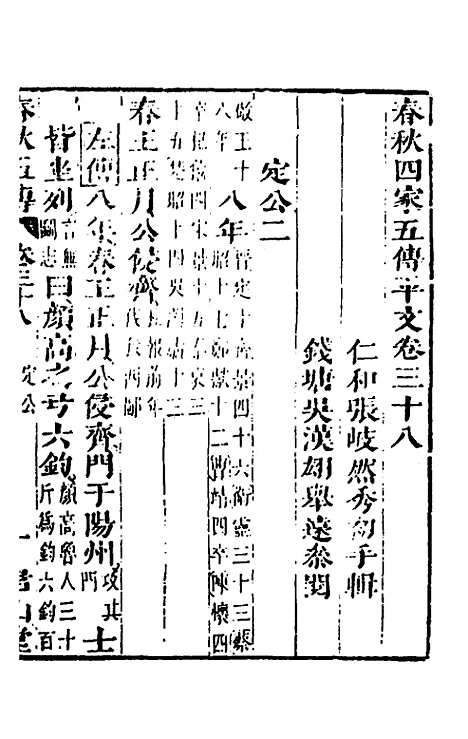 春秋四家五傳平文卷三十八
仁和張岐然秀初手輯
錢塘吳漢翊舉遠參閱
定公二
敬王十八年晉定十齊景四十六衛靈三十三蔡
八年昭十七鄭獻十二曹靖四卒陳懷四
卒杞僖四宋景十五秦哀三
十五楚昭十四吳闔廬十三
春王正月公侵齊報前年伐我西鄙
左傳八年春王正月公侵齊門于陽州攻其門士
皆坐列言無鬭志曰顏高之弓六鈞顏高魯人三十斤爲鈞六鈞百
春秋五傳 卷三十八 定公 一 君山堂